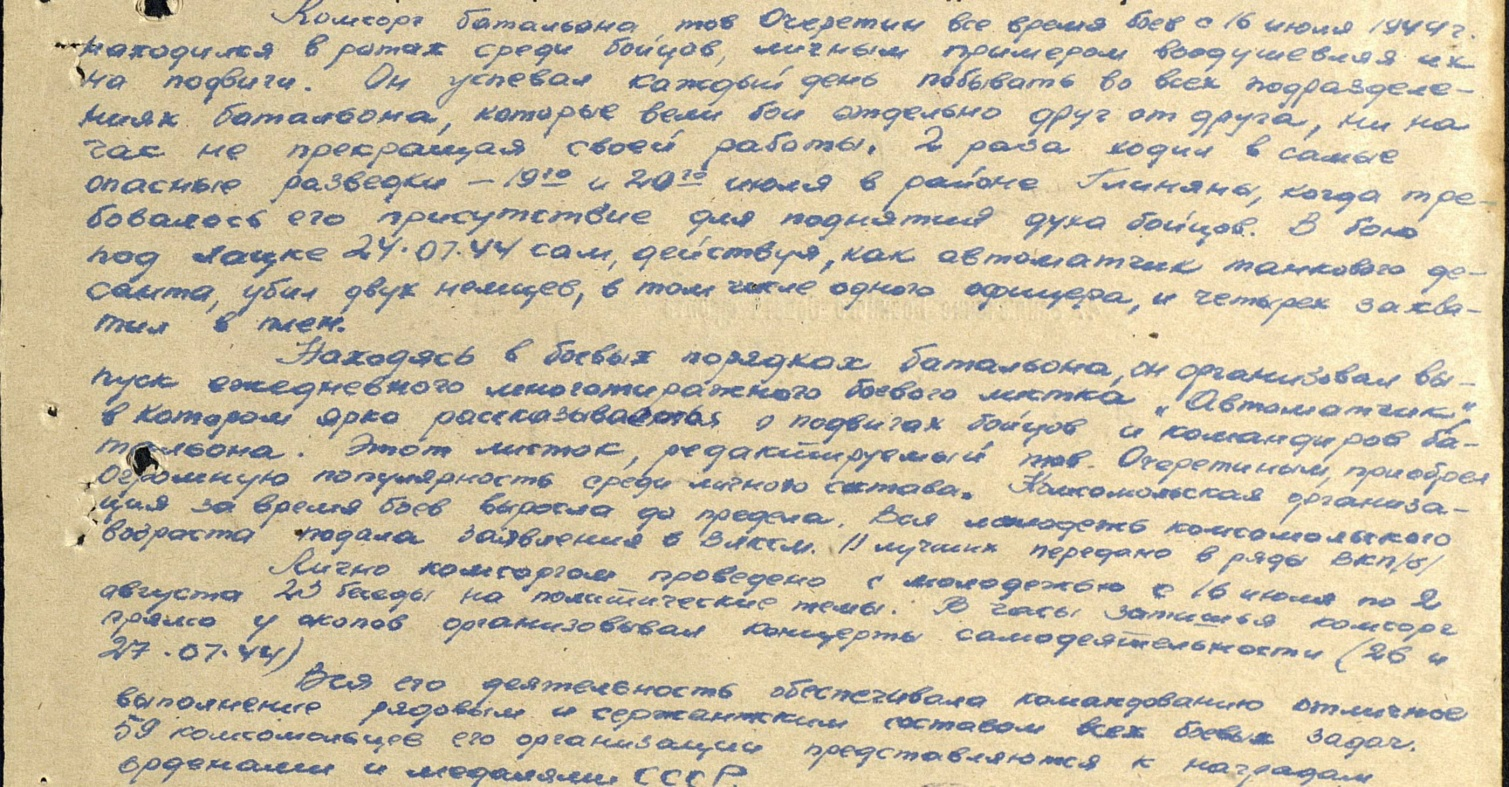 Комсорг батальона тов Очеретин все время боев с 16 июля 1944г.
находился в ротах среди бойцов, личным примером воодушевляя их
на подвиги. Он успевал каждый день побывать во всех подразделе-
ниях батальона, которые вели бои отдельно друг от друга, ни на
час не прекращая своей работы. 2 раза ходил в самые
опасные разведки — 19го и 20го июля в районе Глиняны, когда тре-
бовалось его присутствие для поднятия духа бойцов. В бою
под Лацке 24.07.44 сам, действуя, как автоматчик танкового де-
санта, убил двух немцев, в том числе одного офицера, и четырех захва-
тил в плен.
Находясь в боевых порядках батальона, он организовал вы-
пуск ежедневного многотиражного боевого листка „Автоматчик",
в котором ярко рассказывается о подвигах бойцов и командиров ба-
тальона. Этот листок, редактируемый тов. Очеретиным, приобрел
огромную популярность среди личного состава. Комсомольская организа-
ция за время боев выросла до предела. Вся молодежь комсомольского
возраста подала заявления в ВЛКСМ. 11 лучших передано в ряды ВКП/б/
Лично комсоргом проведено с молодежью с 16 июля по 2
августа 23 беседы на политические темы. В часы затишья комсорг
прямо у окопов организовывал концерты самодеятельности (26 и
27.07.44)
Вся его деятельность обеспечивала командованию отличное
выполнение рядовым и сержантским составом всех боевых задач.
59 комсомольцев его организации представляются к наградам
орденами и медалями СССР.